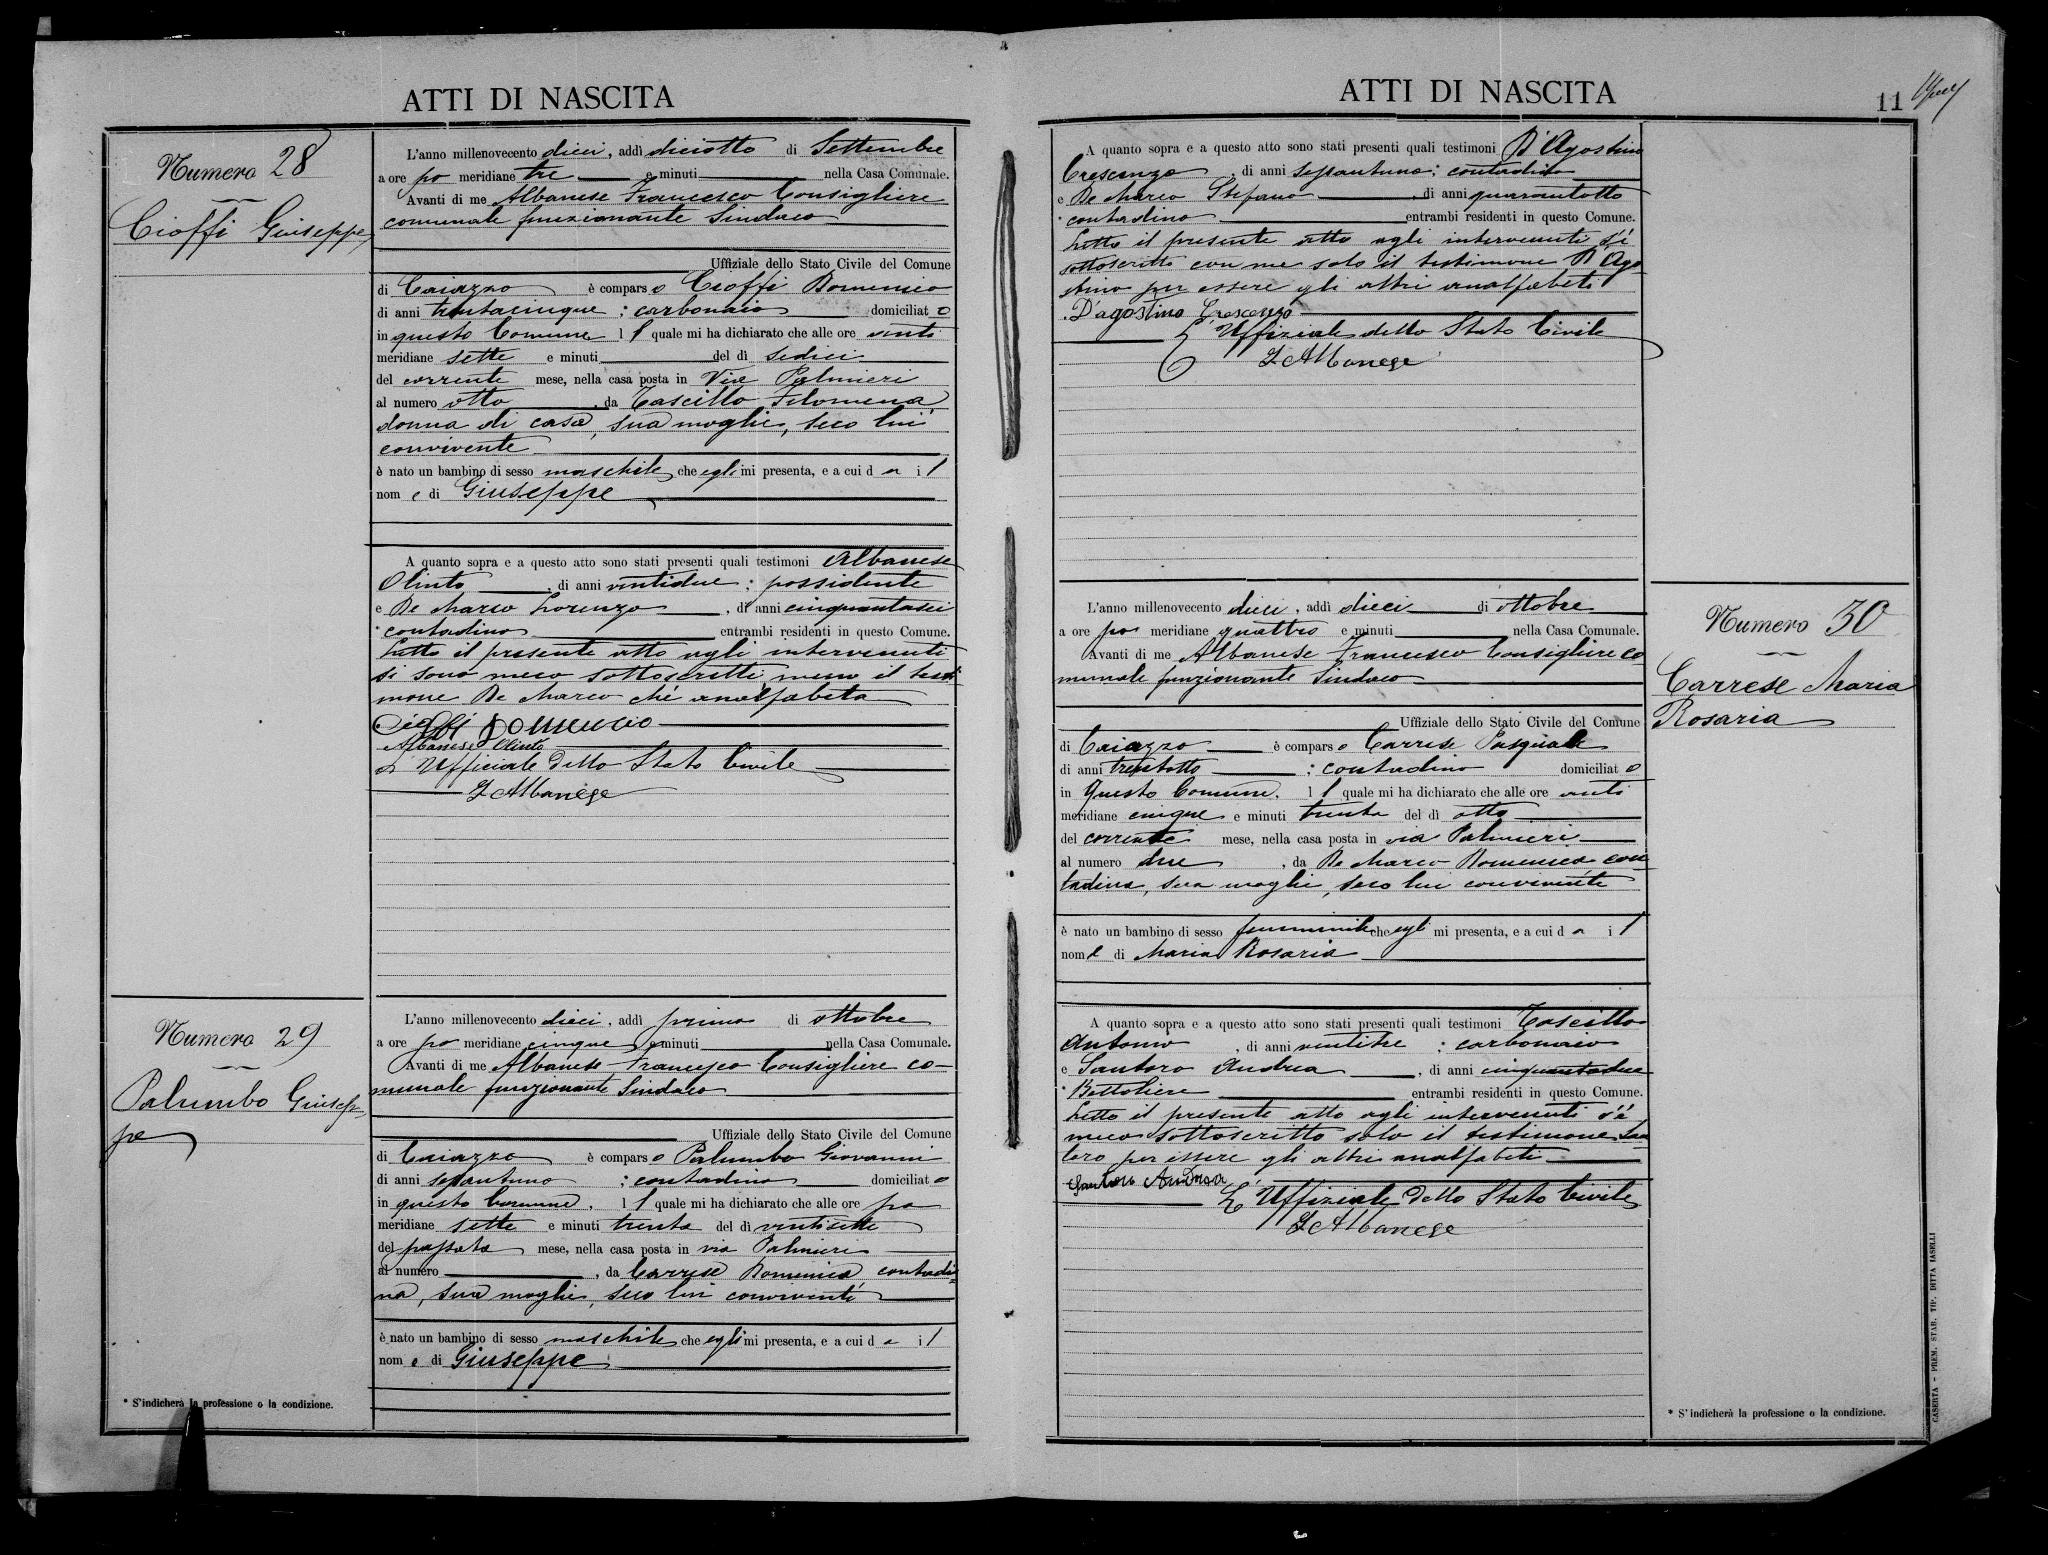 ATTI DI NASCITA
Numero 28
Cioffi Giuseppe
L'anno millenovecento dieci, addì diciotto di Settembre
a ore po meridiane tre e minuti nella Casa Comunale.
Avanti di me Albanese Francesco Consigliere
comunale funzionante Sindaco
Uffiziale dello Stato Civile del Comune
di Caiazzo è comparso Cioffi Domenico
di anni trentacinque ; carbonaio domiciliato
in questo Comune, l l quale mi ha dichiarato che alle ore anti
meridiane sette e minuti del dì sedici
del corrente mese, nella casa posta in Via Palmieri
al numero otto, da Tascillo Filomena
donna di casa, sua moglie, seco lui
convivente
è nato un bambino di sesso maschile che egli mi presenta, e a cui da i l
nome di Giuseppe
A quanto sopra e a questo atto sono stati presenti quali testimoni Albanese
Olinto, di anni ventidue ; possidente
e De Marco Lorenzo, di anni cinquantasei
* contadino entrambi residenti in questo Comune.
Letto il presente atto agli intervenuti
si sono meco sottoscritti meno il testi
mone De Marco chè analfabeta
Cioffi Domenico
Albanese Olinto
L'Ufficiale dello Stato Civile
F Albanese
Numero 29
Palumbo Giusep
pe
L'anno millenovecento dieci, addì primo di ottobre
a ore po meridiane cinque e minuti nella Casa Comunale.
Avanti di me Albanese Francesco Consigliere co-
munale funzionante Sindaco
Uffiziale dello Stato Civile del Comune
di Caiazzo è comparso Palumbo Giovanni
di anni sessantuno ; contadino domiciliato
in questo Comune, l l quale mi ha dichiarato che alle ore po
meridiane sette e minuti trenta del dì ventisette
del passato mese, nella casa posta in via Palmieri
al numero, da Carrese Domenica contadi-
na, sua moglie, seco lui convivente
è nato un bambino di sesso maschile che egli mi presenta, e a cui da i l
nome di Giuseppe
* S'indicherà la professione o la condizione.
ATTI DI NASCITA
11
A quanto sopra e a questo atto sono stati presenti quali testimoni D'Agostino
Crescenzo, di anni sessantuno ; contadino
e De Marco Stefano, di anni quarantotto
* contadino entrambi residenti in questo Comune.
Letto il presente atto agli intervenuti s'è
sottoscritto con me solo il testimone D'Ago
stino per essere gli altri analfabeti
D'agostino Crescenzo
L'Uffiziale dello Stato Civile
F Albanese
L'anno millenovecento dieci, addì dieci di ottobre
a ore po meridiane quattro e minuti nella Casa Comunale.
Avanti di me Albanese Francesco Consigliere co
munale funzionante Sindaco
Uffiziale dello Stato Civile del Comune
di Caiazzo è comparso Carrese Pasquale
di anni trentotto ; contadino domiciliato
in questo Comune, l l quale mi ha dichiarato che alle ore anti
meridiane cinque e minuti trenta del dì otto
del corrente mese, nella casa posta in via Palmieri
al numero due, da De Marco Domenica con
tadina, sua moglie, seco lui convivente
è nato un bambino di sesso femminile che egli mi presenta, e a cui da i l
nome di Maria Rosaria
A quanto sopra e a questo atto sono stati presenti quali testimoni Tascillo
Antonio, di anni ventitre ; carbonaio
e Santoro Andrea, di anni cinquantadue
* Bettoliere entrambi residenti in questo Comune.
Letto il presente atto agli intervenuti s'è
meco sottoscritto solo il testimone San
toro per essere gli altri analfabeti
Santoro Andrea
L'Uffiziale dello Stato Civile
F Albanese
Numero 30
Carrese Maria
Rosaria
* S'indicherà la professione o la condizione.
CASERTA - PREM. STAB. TIP. DITTA IASELLI